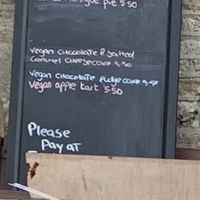 pie 5.50
Vegan Chocolate & Salted
Caramel Cheesecake 5.50
Vegan Chocolate fudge cake 5.50
Vegan apple tart 5.50
Please
Pay at